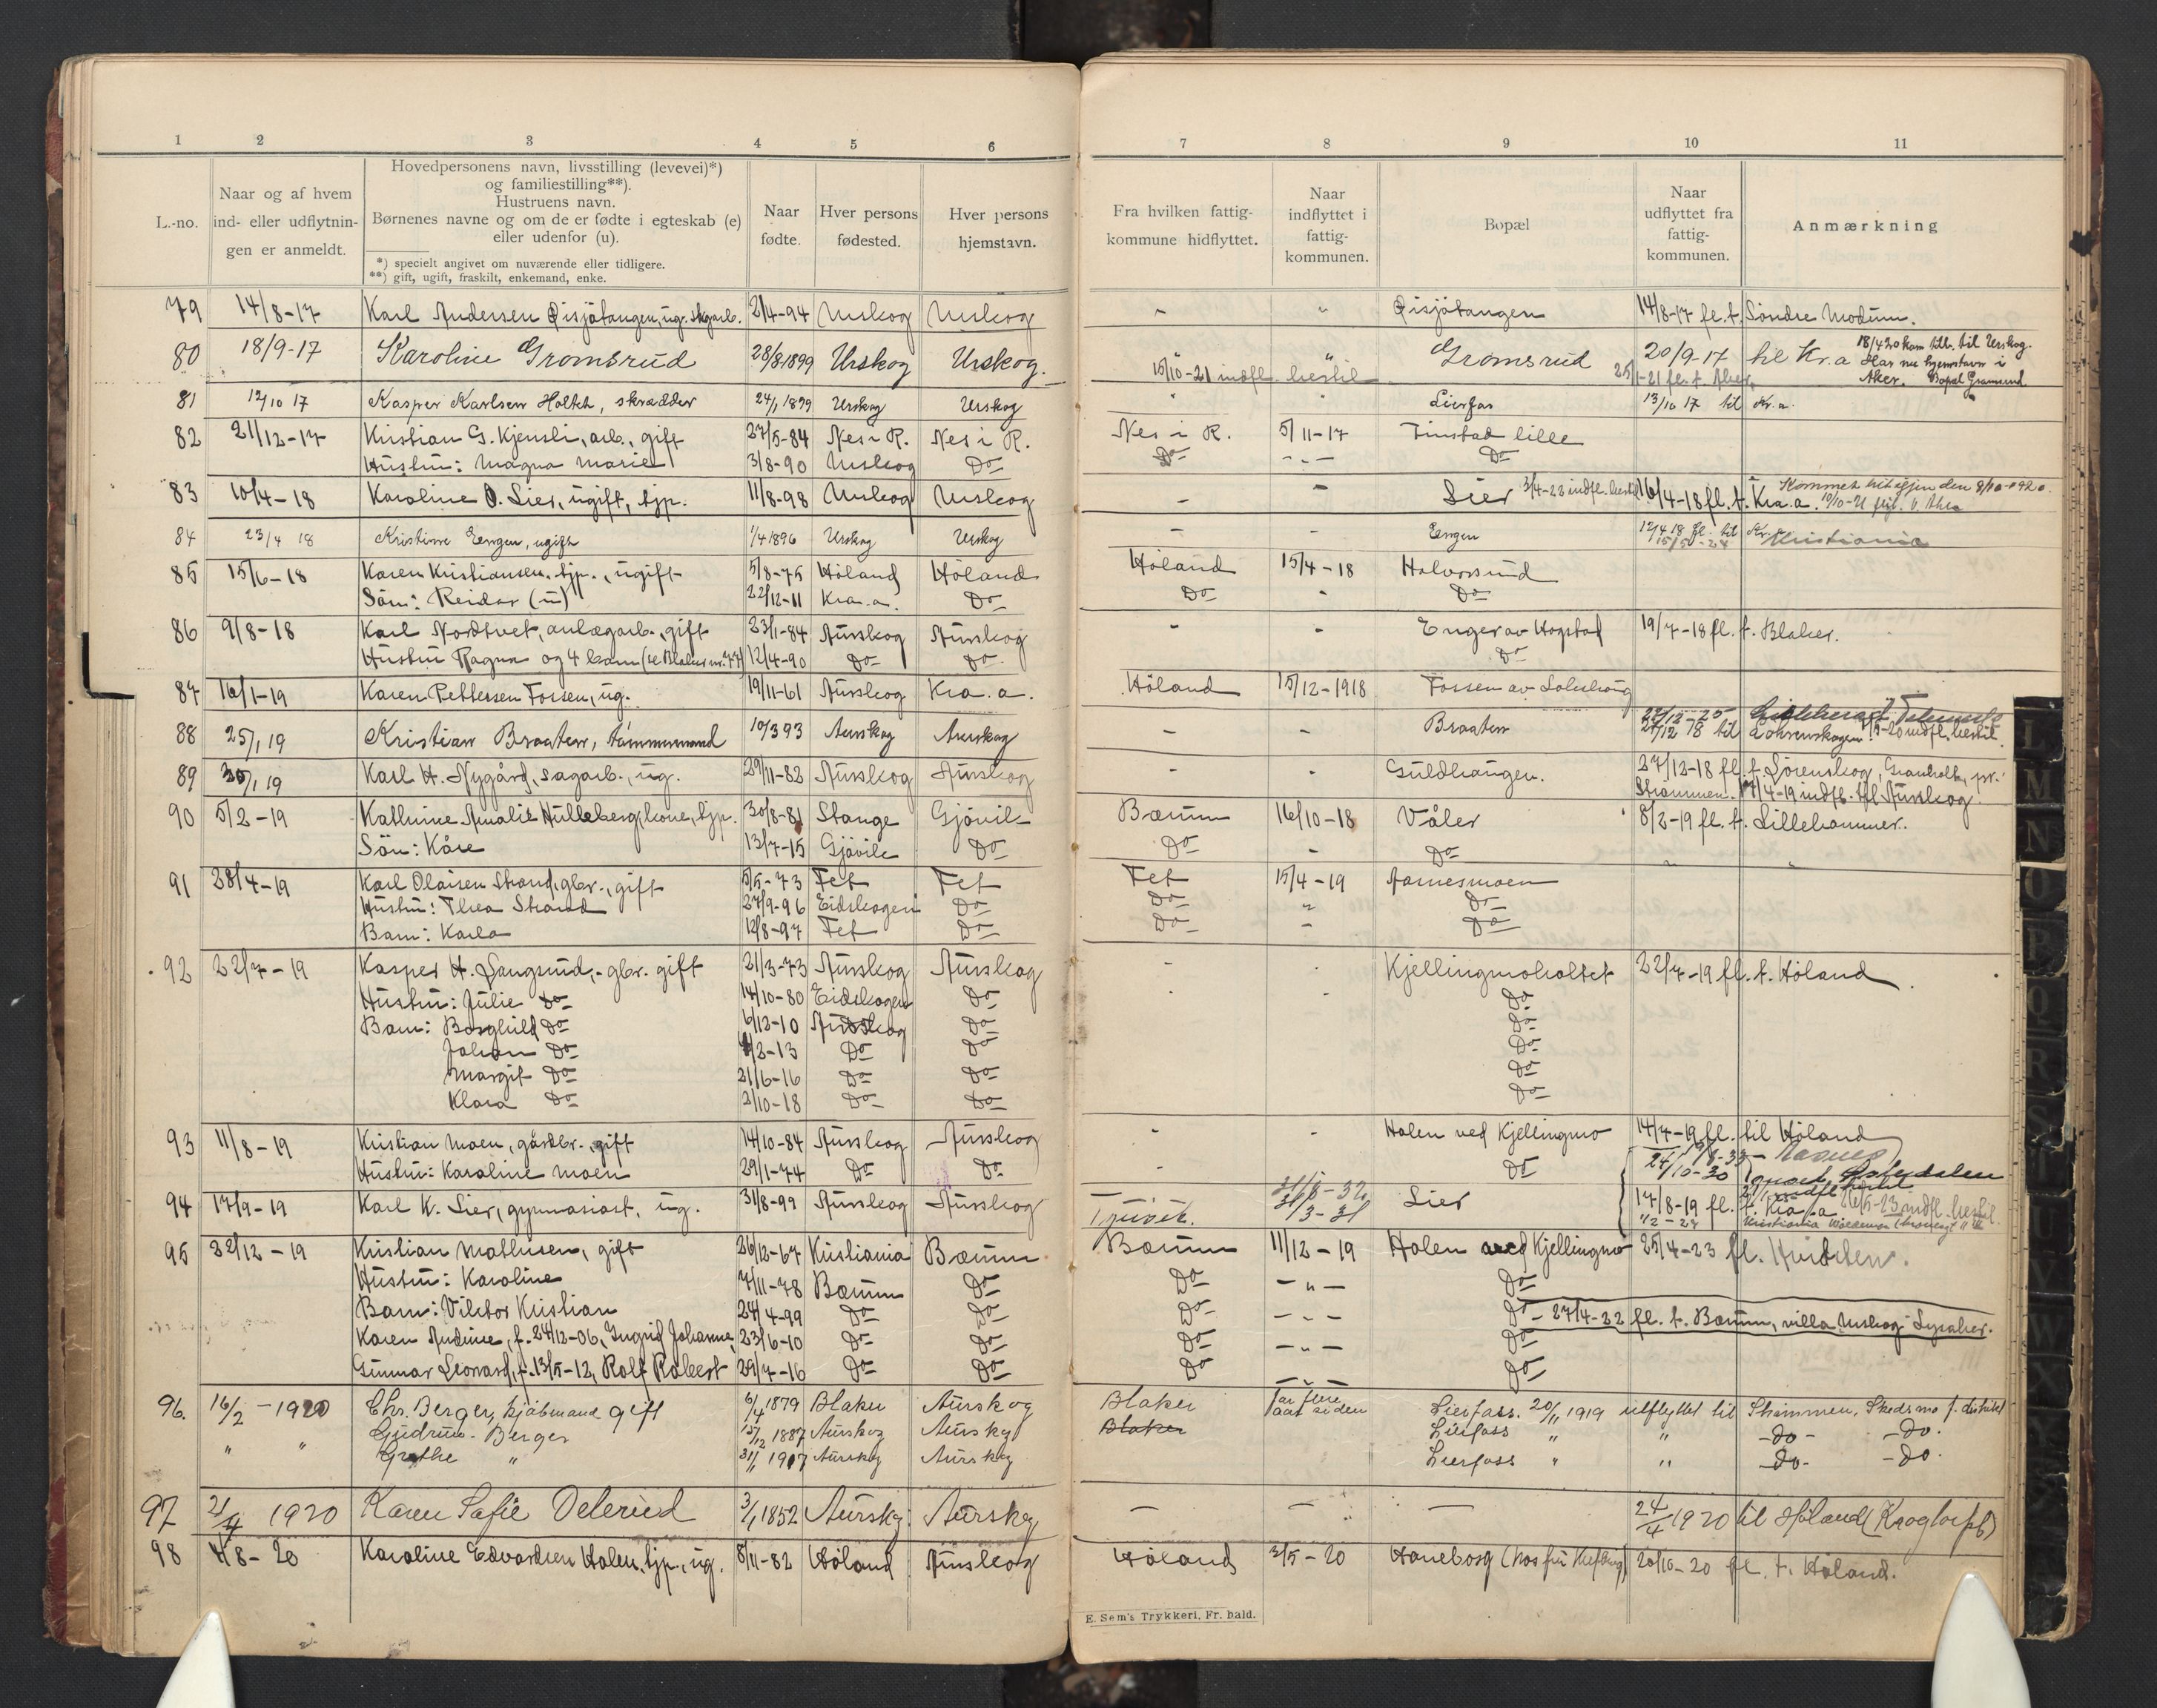 1 2 3 4 5 6 7 8 9 10 11
L.-no.
Naar og af hvem
ind- eller udflytnin-
gen er anmeldt.
Hovedpersonens navn, livsstilling (levevei)*)
og familiestilling**).
Hustruens navn.
Børnenes navne og om de er fødte i egteskab (e)
eller udenfor (u).
*) specielt angivet om nuværende eller tidligere.
**) gift, ugift, fraskilt, enkemand, enke.
Naar
fødte.
Hver persons
fødested.
Hver persons
hjemstavn.
Fra hvilken fattig-
kommune hidflyttet.
Naar
indflyttet i
fattig-
kommunen.
Bopæl
Naar
udflyttet fra
fattig-
kommunen.
Anmærkning
79 14/8-17 Karl Andersen Øisjøtangen, ug. skgarb. 21/4-94 Urskog Urskog - " Øisjøtangen 14/8-17 fl. t. Söndre Modum.
80 18/9-17 Karoline Gromsrud 28/8 1899 Urskog Urskog. " " Gromsrud 20/9-17 til Kr.a
18/4 20 kom tilb. til Urskog.
Har nu hjemstavn i
Aker. Bopæl Gromsrud.
15/10-21 indfl. hertil 25/1-21 fl. t. Aker.
81 12/10 17 Kasper Karlsen Holtet, skrædder 24/1 1899 Urskog Urskog " " Lierfos 13/10 17 til Kr.a.
82 21/12-17 Kristian G. Kjensli, arb., gift 27/5-84 Nes i R. Nes i R. Nes i R. 5/11-17 Finstad lille
Hustru: Magna Marie 3/8-90 Urskog Do Do - " - Do
83 10/4-18 Karoline O. Lier, ugift, tjp. 11/8-98 Urskog Urskog - - Lier 3/4-23 indfl. hertil 16/4-18 fl. t. Kra.a. Kommet hit igjen den 8/10-1920.
84 23/4 18 Kristine Engen, ugift 1/4 1896 Urskog Urskog - - Engen 12/4 18 fl. til Kr.a
15/5-24 Kristiania
85 15/6-18 Karen Kristiansen, tjp., ugift 5/8-75 Höland Höland Höland 15/4-18 Halvorsrud
Sön: Reidar (u) 22/12-11 Kra.a. Do Do - Do
86 9/8-18 Karl Nordtvet, anlægarb., gift 23/1-84 Aurskog Aurskog - - Enger av Hogstad 19/7-18 fl. t. Blaker.
Hustru Ragna og 4 barn (se Blaker nr. 77) 12/4-90 Do Do Do
87 16/1-19 Karen Pettersen Fossen, ug. 19/11-61 Aurskog Kra.a. Höland 15/12-1918 Fossen av
88 25/1 19 Kristian Braaten, tømmermand 10/3 93 Aurskog Aurskog - - Braaten 22/12-25
27/12 18 til
89 30/1 19 Karl H. Nygård, sagarb., ug. 29/11-82 Aurskog Aurskog - - Guldhaugen. 27/12-18 fl. t. Lörenskog, Granholt, pr.
Strömmen. 17/4-19 indfl. til Aurskog.
90 5/2-19 Kathrine Amalie Hulleberg, kone, tjp. 30/8-81 Stange Gjövik Bærum 16/10-18 Våler 8/2-19 fl. t. Lillehammer.
Sön: Kåre 13/7-15 Gjövik Do Do - Do
91 28/4-19 Karl Olaisen Strand, gbr., gift 5/5-73 Fet Fet Fet 15/4-19 Aarnesmoen
Hustru: Thea Strand 27/9-96 Eidskogen Do Do " Do
Barn: Karla 12/8-97 Fet Do Do - Do
92 22/7-19 Kasper H. Langsrud, gbr. gift 21/3-73 Aurskog Aurskog - - Kjellingmoholtet 22/7-19 fl. t. Höland
Hustru: Julie Do 14/10-80 Eidskogen Do - - Do
Barn: Borghild Do 6/12-10 Aurskog Do Do
Johan Do 4/2-13 Do Do Do
Margit Do 21/6-16 Do Do Do
Klara Do 2/10-18 Do Do Do
93 11/8-19 Kristian Moen, gårdbr., gift 14/10-84 Aurskog Aurskog - - Holen ved Kjellingmo 14/7-19 fl. til Höland
Hustru: Karoline Moen 29/1-74 Do Do - Do
24/10-30
94 17/9-19 Karl K. Lier, gymnasiast, ug. 31/8-99 Aurskog Aurskog 31/3-31 Lier 17/8-19 fl. t. Kra.a. 26/5-23 indfl. hertil.
95 22/12-19 Kristian Mathisen, gift 26/12-67 Kristiania Bærum Bærum 11/12-19 Holen ved Kjellingmo 25/4-23 fl. Hvidsten.
Hustru: Karoline 7/11-78 Bærum Do Do - " - Do
Barn: Viktor Kristian 24/4-99 Do Do Do - " - Do - 27/4-22 fl. t. Bærum, villa Urskog Lysaker.
Karen Andrine, f. 24/12-06, Ingrid Johanne, 23/6-10 Do Do Do - " - Do
Gunnar Leonard, f. 13/5-12, Rolf Robert 29/7-16 Do Do Do - " - Do
96. 16/2-1920 Chr. Berger, kjøbmand gift 6/4 1879 Blaker Aurskog Blaker for flere aar siden Lierfoss. 20/11 1919 utflyttet til Strømmen, Skedsmo f. distrikt
Gudrun Berger 15/12 1887 Aurskog Aurskog Blaker Lierfoss " " -Do- -Do-
" " Grethe " 31/1 1917 Aurskog Aurskog Lierfoss " " -Do- -Do-
97 21/4 1920 Karen Sofie Delerud 3/1 1852 Aurskog Aurskog - - - 24/4 1920 til Høland (Krogtorpet)
98 4/8-20 Karoline Edvardsen Holen, tjp., ug. 8/11-82 Höland Aurskog Höland 2/5-20 Haneborg 20/10-20 fl. t. Höland.
E. Sem's Trykkeri, Fr. hald.
L
M
N
O
P
Q
R
S
T
U
V